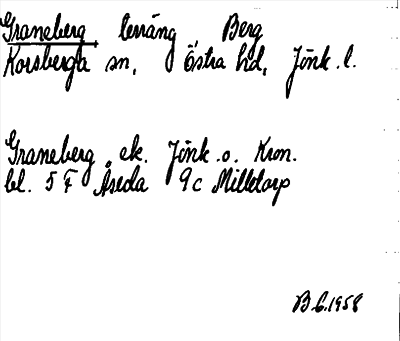 Graneberg terräng Berg
Korsberga sn, Östra hd, Jönk. l.
Graneberg, ek. Jönk. o. Kron.
bl. 5 F Åseda 9c Milletorp
B.C. 1958